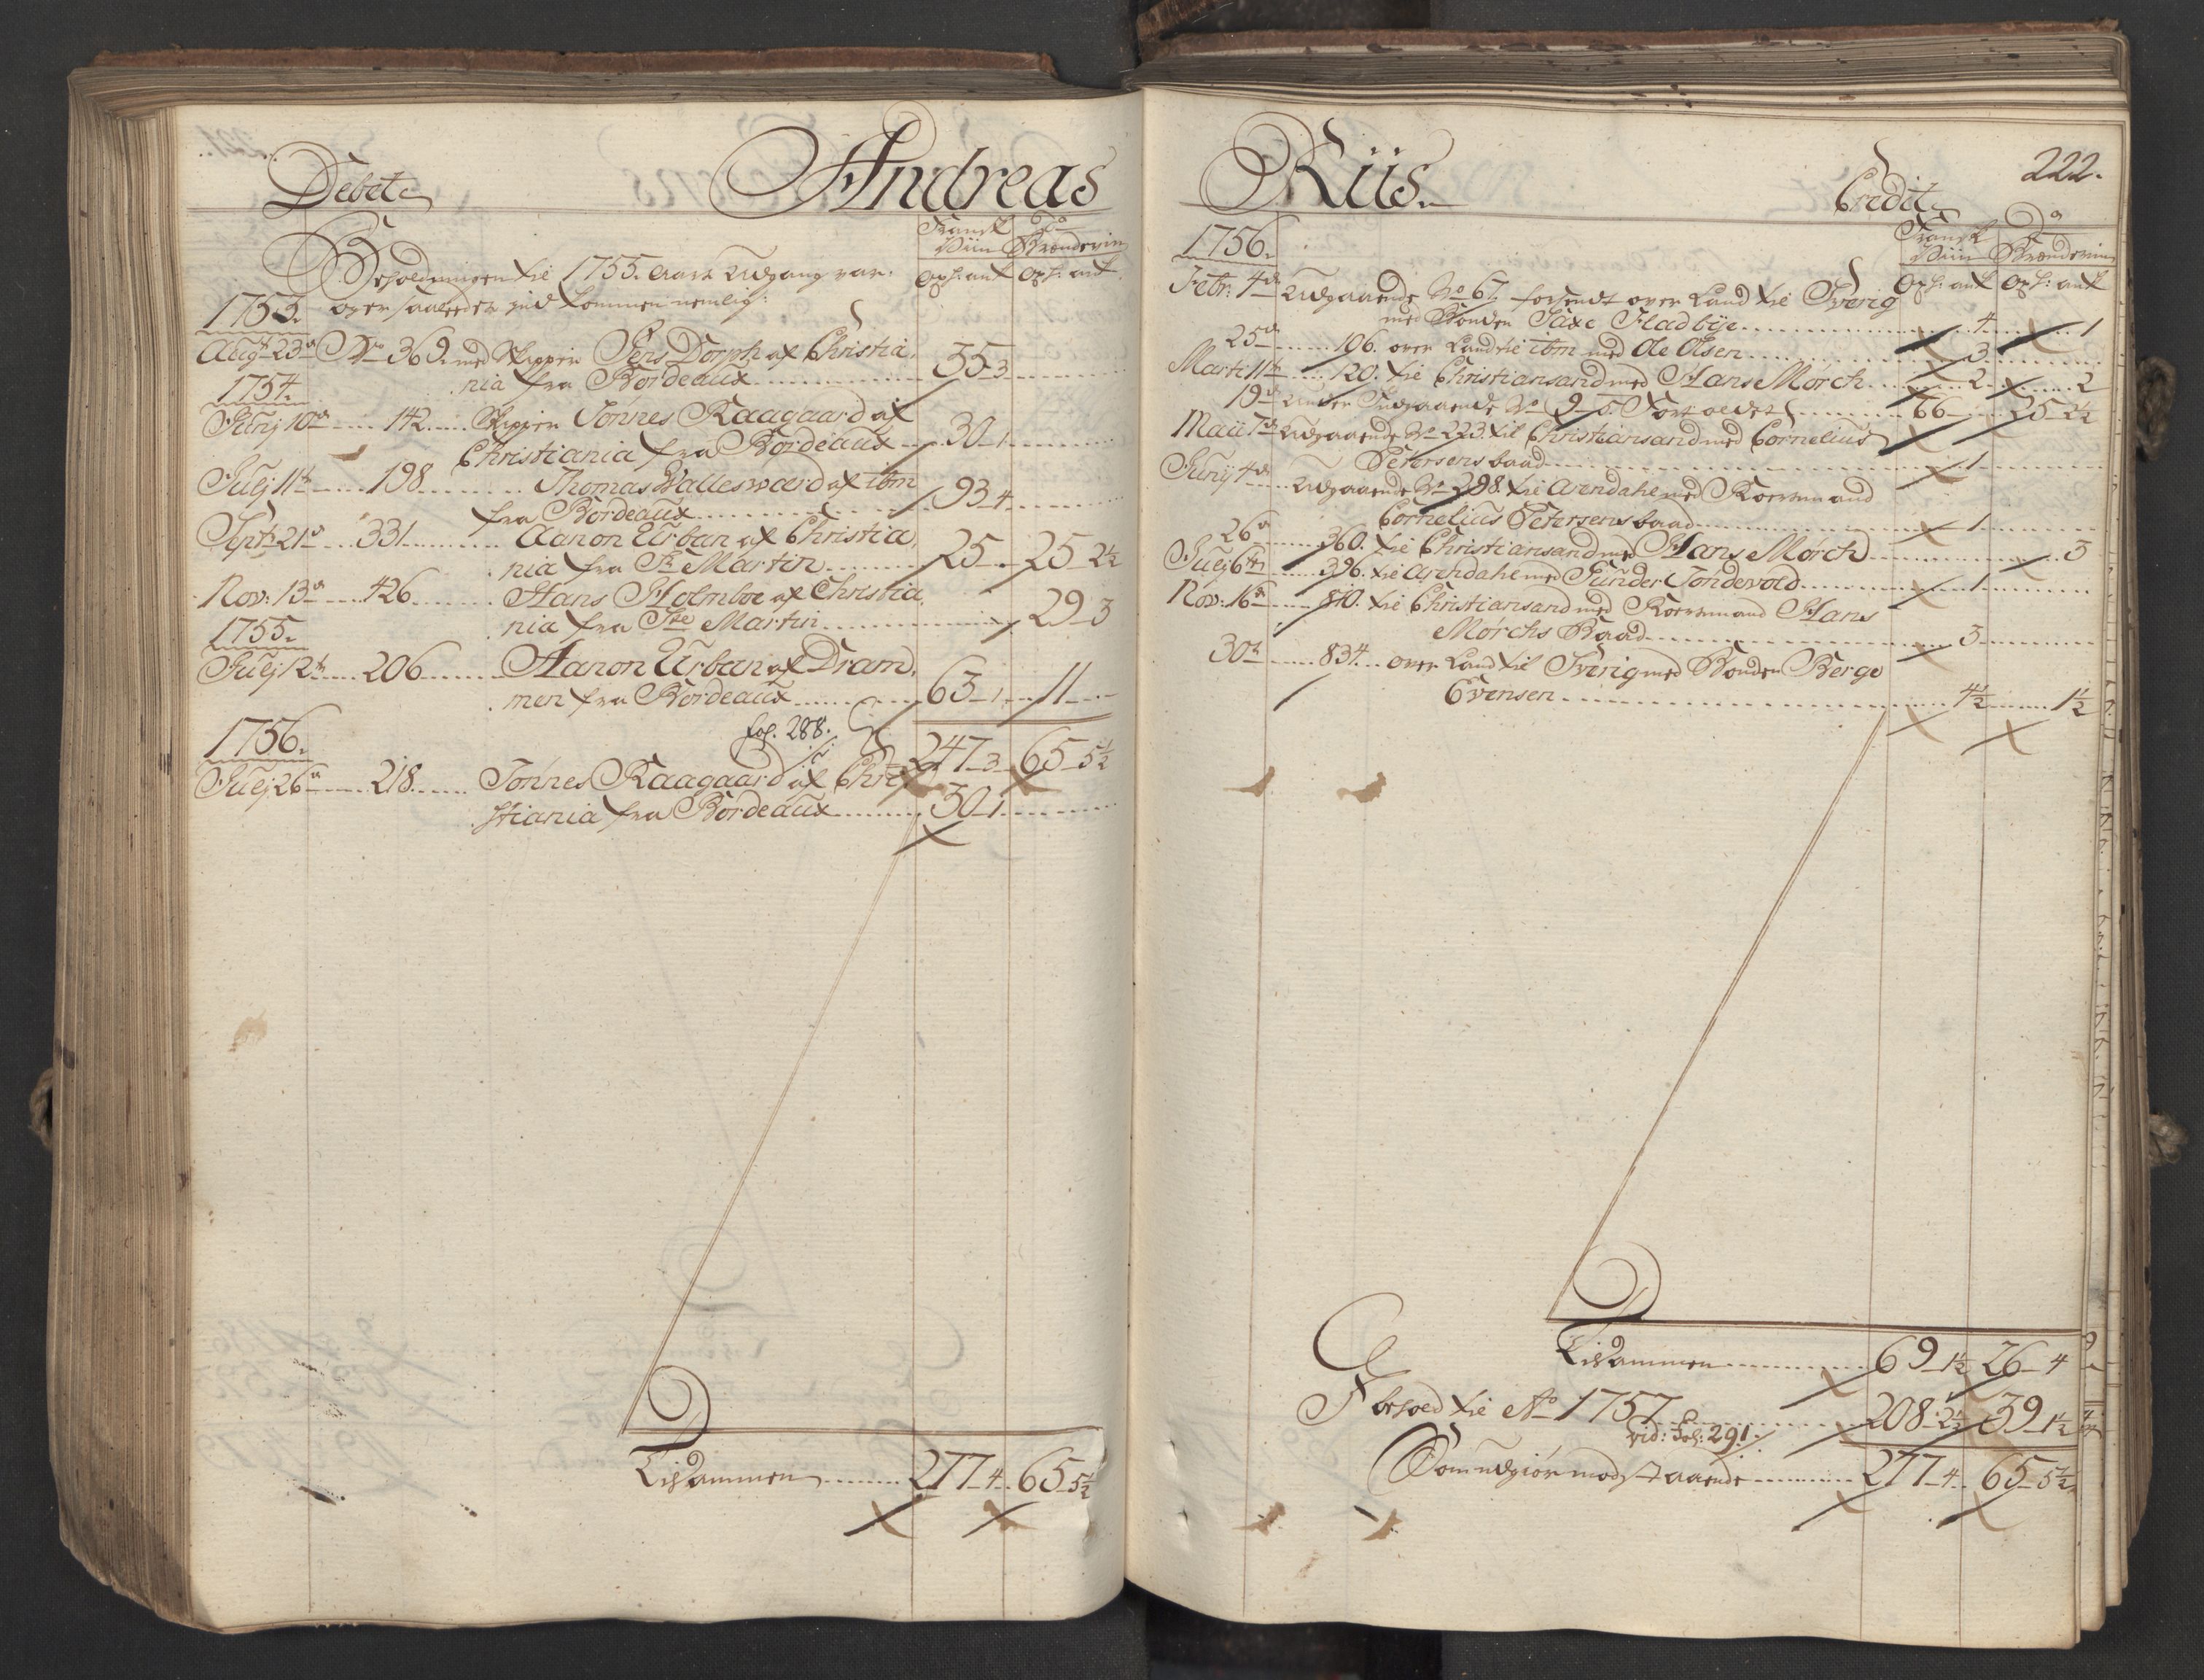 Debet
Andreas
Fransk Do
Viin Brændeviin
Beholdningen til 1755. Aars Udgang var:
oxh: ank oxh: ank
over saaleedes ind kommen nemlig:
1753.
Augti 23de No 369. med Skipper Jens Dorph af Christia,
nia fra Bordeaux 35 3
1754.
Junij 10de 142. Skipper Tønnes Kaagaard af
Christiania fra Bordeaux 30 1
Julij 11te 198 Thomas Walleswærd af ibm
fra Bordeaux 93 4
Septr 21de 331 Aanon Urban af Christia,
nia fra St Martin 25 - 25 2½
Nov: 13de 426 Hans Holmboe af Christia,
nia fra Ste Martin 29 3
1755.
Julij 12te 206 Aanon Urban af Dram,
men fra Bordeaux 63 1 11 -
fol. 288.
247 3 65 5½
1756.
Julij 26de 218. Tønnes Kaagaard af Chri
stiania fra Bordeaux 30 1
Tilsammen 277 4 65 5½
Riis.
Credit
222.
Fransk Do
Viin Brændeviin
1756.
oxh: ank oxh: ank
Febr: 4de Udgaaende No 67, forsendt over Land til Sverig
med Bonden Saxe Fladbye 4 1
25de 106. over Land til ibm med Ole Olsen 3
Marti 11te 120. til Christiansand med Hans Mørch 2 2
19de Under Indgaaende No 9 5. Fortoldet 66 25 2½
Maii 7de Udgaaende No 223. til Christiansand med Cornelius
Petersens baad 1
Junij 4de Udgaaende No 298. til Arendahl med Koersmand
Cornelius Petersens baad 1
26de 360. til Christiansand med Hans Mørch 3
Julij 6te 396. til Arendahl med Gunder Tøndevold 1
Nov: 16de 810. til Christiansand med Koersmand Hans
Mørchs Baad 3
30te 834. over Land til Sverig med Bonden Berge
Evensen 4½ 1½
Tilsammen 69 1½ 26 4
I behold til Ao 1757 208 2½ 39 1½
vid: Fol: 291.
Som udgiør modstaaende 277 4 65 5½